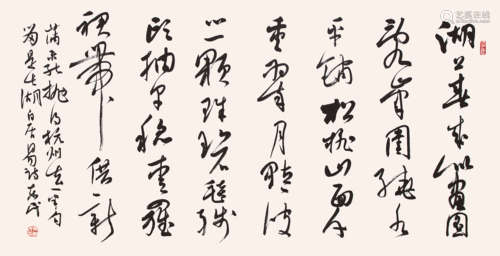 湖上春来似画图
乱峰围绕水
平铺松排山面千
重翠月点波
心一颗珠碧毯线
头抽早稻青罗
裙带展新
蒲未能抛得杭州去一半勾
留是此湖白居易诗
艺狐在线